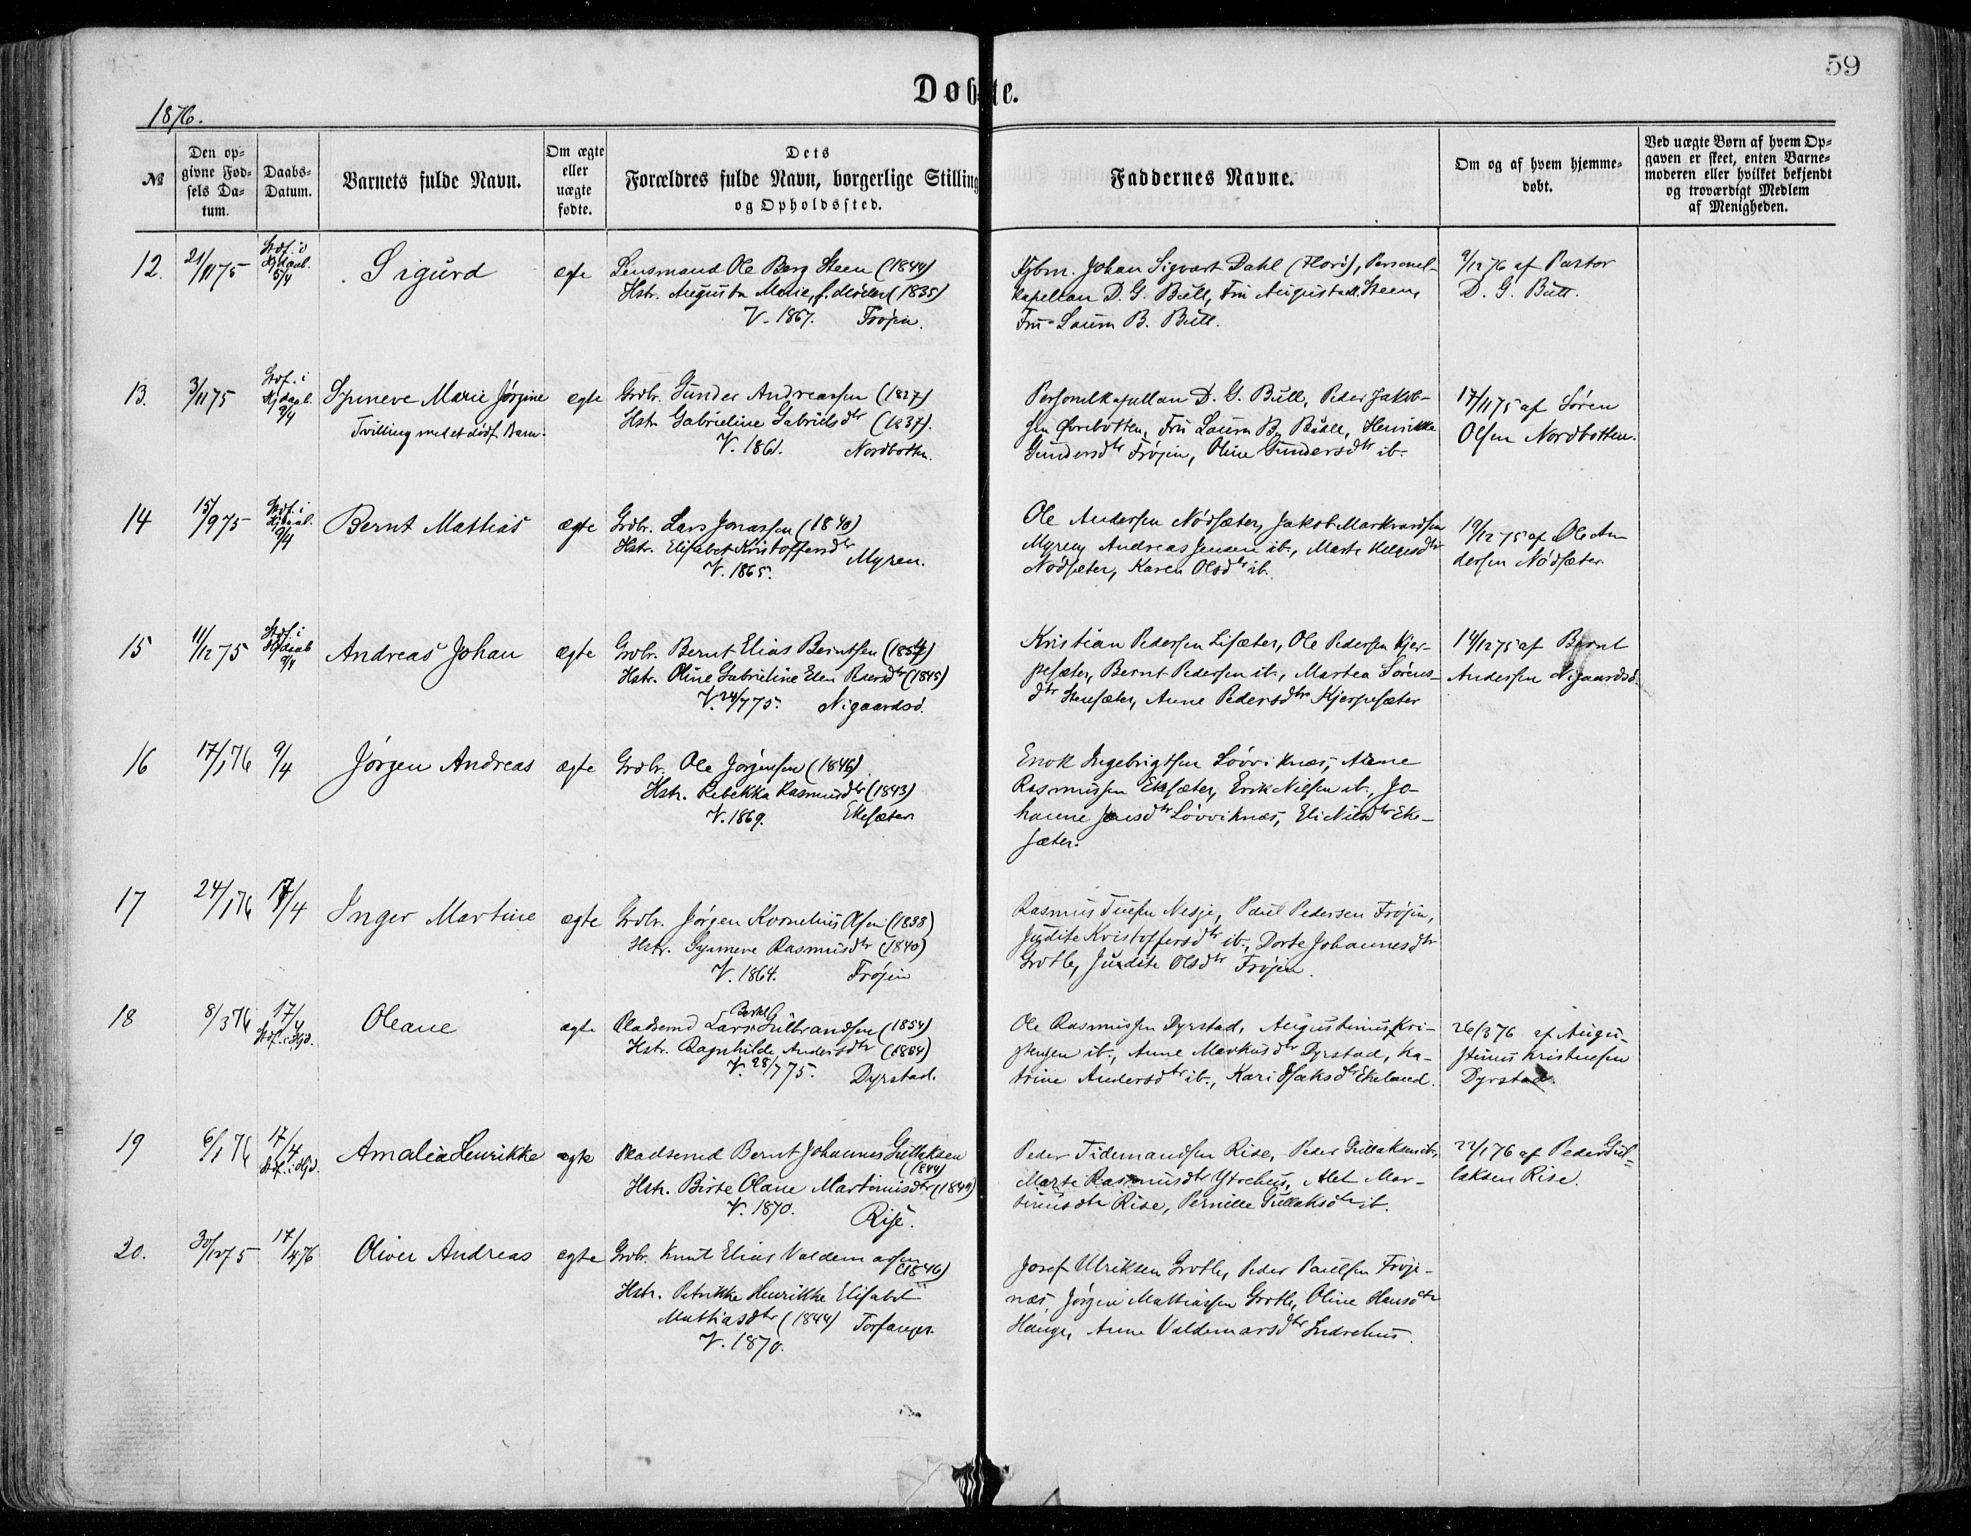 59
Døbte.
1876.
№
Den op-
givne Fød-
sels Da-
tum.
Daabs-
Datum.
Barnets fulde Navn.
Om ægte
eller
uægte
fødte.
Dets
Forældres fulde Navn, borgerlige Stilling
og Opholdssted.
Faddernes Navne.
Om og af hvem hjemme-
døbt.
Ved uægte Børn af hvem Op-
gaven er skeet, enten Barne-
moderen eller hvilket bekjendt
og troværdigt Medlem
af Menigheden.
12.
21/11 75
Stdf. i
Hjdaab.
5/4
Sigurd
ægte
Lensmand Ole Berg Steen (1844)
Hstr. Augusta Marie, f. (1835)
V. 1867. Frøjen.
Kjbm. Johan Sigvart Dahl (Florø), Personel-
kapellan D. G. Bull, Fru Augusta M. Steen,
Fru Laura B. Bull.
9/12 76 af Pastor
D. G. Bull.
13.
3/11 75
Stdf. i
Hjdaab.
9/4
Synneve Marie Jørgine
Tvilling med et dødf. Barn.
ægte
Grdbr. Gunder Andreassen (1827)
Hstr. Gabrieline Gabrielsdtr (1837).
V. 1861. Nordbotten.
Personelkapellan D. G. Bull, Peder Jakob-
sen Ørebotten, Fru Laura B. Bull, Henrikke
Gundersdtr Frøjen, Oline Gundersdtr ib.
17/11 75 af Søren
Olsen Nordbotten.
14
15/9 75
Stdf. i
Hjdaab.
9/4
Bernt Mathias
ægte
Grdbr. Lars Jonassen (1840)
Hstr. Elisabet Kristoffersdtr
V. 1865. Myren.
Ole Andersen Nødsæter, Jakob Markvardsen
Myren, Andreas Jensen ib., Marte Helgesdtr
Nødsæter, Karen Olsdtr ib.
19/12 75 af Ole An-
dersen Nødsæter.
15
11/12 75
Stdf. i
Hjdaab
9/4
Andreas Johan
ægte
Grdbr. Bernt Elias Berntsen (1854)
Hstr. Oline Gabrieline Elen Pedersdtr (1845)
V. 24/7 75. Nigaardsd.
Kristian Pedersen Lisæter, Ole Pedersen Kjer-
pesæter, Bernt Pedersen ib., Martea Sørens-
dtr Stensæter, Anne Pedersdtr Kjerpesæter
14/12 75 af Bernt
Andersen Nigaardsd.
16
17/1 76
9/4
Jørgen Andreas
ægte
Grdbr. Ole Jørgensen (1846)
Hstr. Rebekka Rasmusdtr (1843)
V. 1869. Ekesæter
Enok Ingebrigtsen Løvviknæs, Arne
Rasmussen Ekesæter, Erik Nielsen ib., Jo-
hanne Jensdtr Løvviknæs, Eli Nilsdtr Eke-
sæter.
17
24/1 76
17/4
Inger Martine
ægte
Grdbr. Jørgen Kornelius Olsen (1838)
Hstr. Synneve Rasmusdtr (1840)
V. 1864. Frøjen
Rasmus Tuesen Nesje, Paul Pedersen Frøjen,
Judite Kristoffersdtr ib., Dorte Johannesdtr
Grotle, Judite Olsdtr Frøjen.
18
8/3 76
17/4
Stdf. i Hjd.
Oleane
ægte
Pladsemd Lars Bertel Gulbrandsen (1854)
Hstr. Ragnhilde Andersdtr (1854)
V. 28/7 75. Dyrstad.
Ole Rasmussen Dyrstad, Augustinus Kri-
stensen ib., Anne Markusdtr Dyrstad, Ka-
trine Andersdtr ib., Kari Isaksdtr Ekeland.
26/3 76 af Augu-
stinus Kristensen
Dyrstad.
19
6/1 76
17/4
Stdf. i Hjd.
Amalia Henrikke
ægte
Pladsemd Bernt Johannes Gullaksen
(1844)
Hstr. Birte Olane Martinusdtr (1849)
V. 1870.
Rise.
Peder Tidemandsen Rise, Peder Gullaksen ib.,
Marte Rasmusdtr Ytrehus, Alet Mar-
tinusdtr Rise, Pernille Gullaksdtr ib.
22/1 76 af Peder Gul-
laksen Rise.
20.
30/12 75
17/4 76
Oliver Andreas
ægte
Grdbr. Knut Elias Valdemarsen
(1846)
Hstr. Petrikke Henrikke Elisabet
Mathiasdtr (1844) Torfanger.
V. 1870.
Josef Ulriksen Grotle, Peder Paulsen Frøje-
næs, Jørgen Mathiassen Grotle, Oline Hansdtr
Hauge, Anne Valdemarsdtr Indrehus.